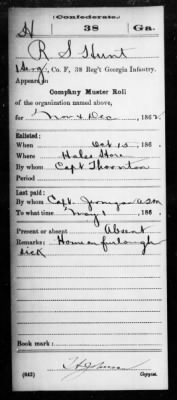 (Confederate.)
H 38 Ga.
R S Hunt
1 Serg, Co. F, 38 Reg't Georgia Infantry.
Appears on
Company Muster Roll
of the organization named above,
for Nov & Dec, 1862.
Enlisted:
When Oct 15, 186
Where Hales Store
By whom Capt Thornton
Period
Last paid:
By whom Capt. Jernigan AQM
To what time May 1, 186
Present or absent Absent
Remarks: Home on furlough
sick
Book mark:
(642) Copyist.